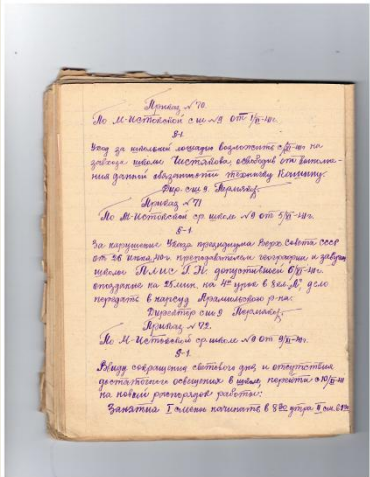 Приказ №70.
По М-Истокской с ш №9 от 1/XI-40г.
§-1
Уход за школьной лошадью возложить с 2/XI-40г на
завхоза школы Чистякова, освободив от выполне-
ния данной обязанности техничку Кашину.
Дир. сш 9. Пермяков
Приказ №71
По М-Истокской ср. школе №9 от 5/XI-40г.
§-1.
За нарушение Указа президиума Верх. Совета СССР
от 26 июня 40г преподавателя географии и завуча
школы Г.П. допустившей 6/XI-40г.
опоздание на 25 мин. на 4й урок в 8 кл. "А", дело
передать в нарсуд Арамильского р-на.
Директор сш 9 Пермяков
Приказ №72.
По М-Истокской ср школе №9 от 9/XI-40г.
§-1.
Ввиду сокращения светового дня и отсутствия
достаточного освещения в школе, перейти с 10/XI-40
на новый распорядок работы:
Занятия I смены начинать в 8 утра II см.